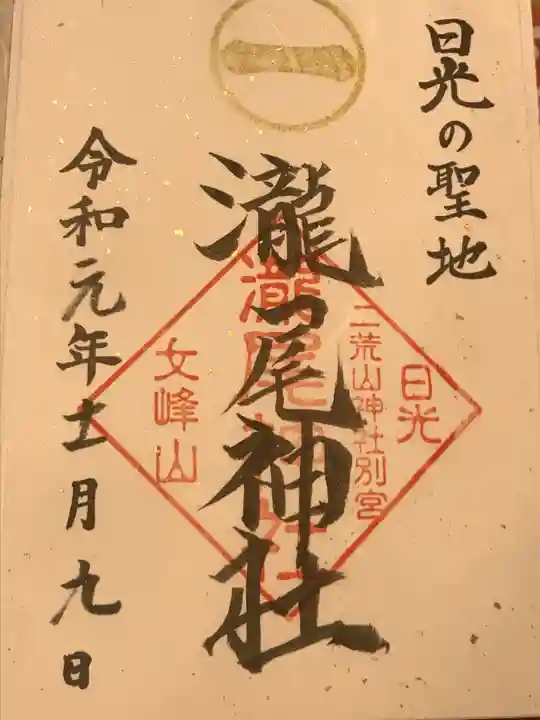 日光の聖地
一
瀧尾神社
令和元年十一月九日
日光
二荒山神社別宮
瀧尾神社
女峰山